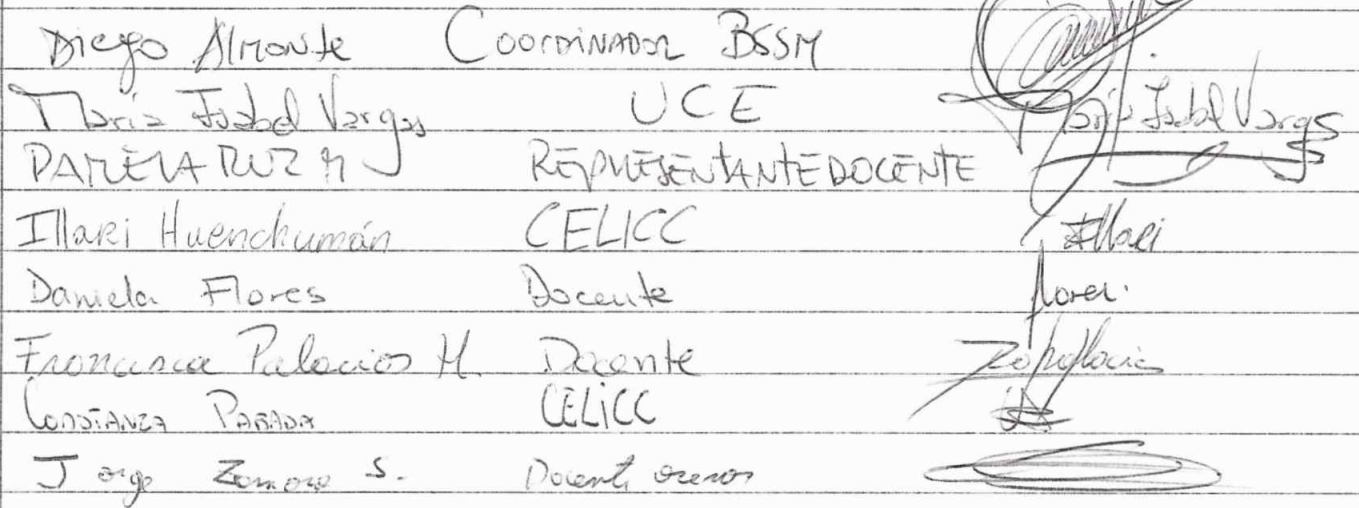 Diego Almonte Coordinador BSSM
María Isabel Vargas UCE María Isabel Vargas
PAMELA RUZ M REPRESENTANTE DOCENTE
Illari Huenchumán CELICC Illari
Daniela Flores Docente flores.
Francisca Palacios H. Docente
Constanza Parada CELICC
Jorge Zamora S. Docente